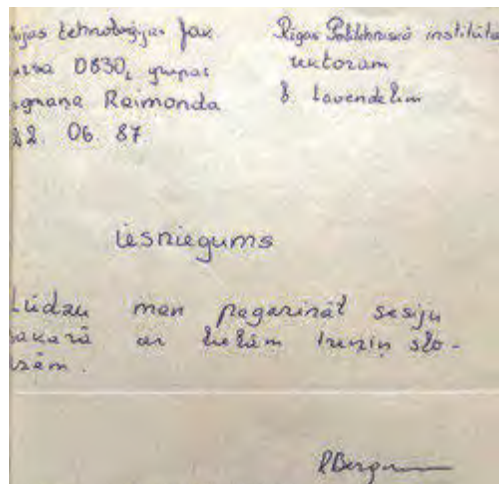 ijas tehnoloģijas fak.
ursa 0830, grupas
gmaņa Raimonda
22. 06. 87
Rīgas Politehniskā institūta
rektoram
E. Lavendelim
iesniegums
Lūdzu man pagarināt sesiju
sakarā ar lielām treniņ slo-
dzēm.
RBergm